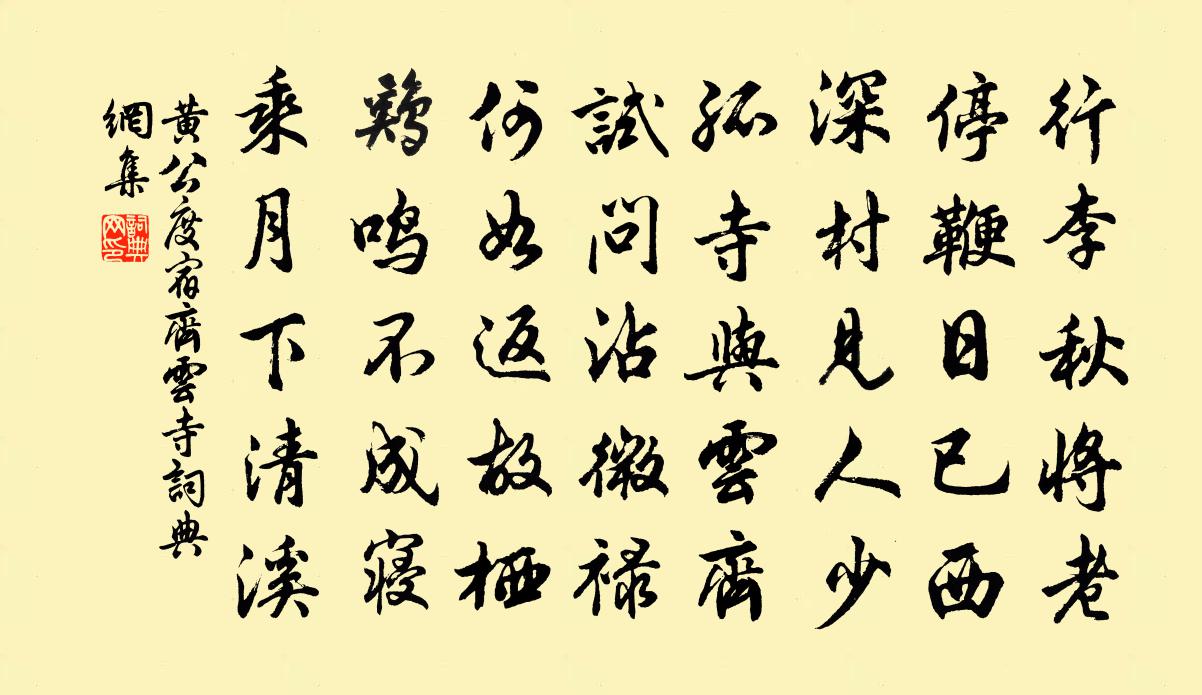 行李秋將老
停鞭日已西
深村見人少
孤寺與雲齊
試問沾微祿
何如返故栖
鷄鳴不成寢
乘月下清溪
黃公度宿齊雲寺詞典
網集
詞典網印